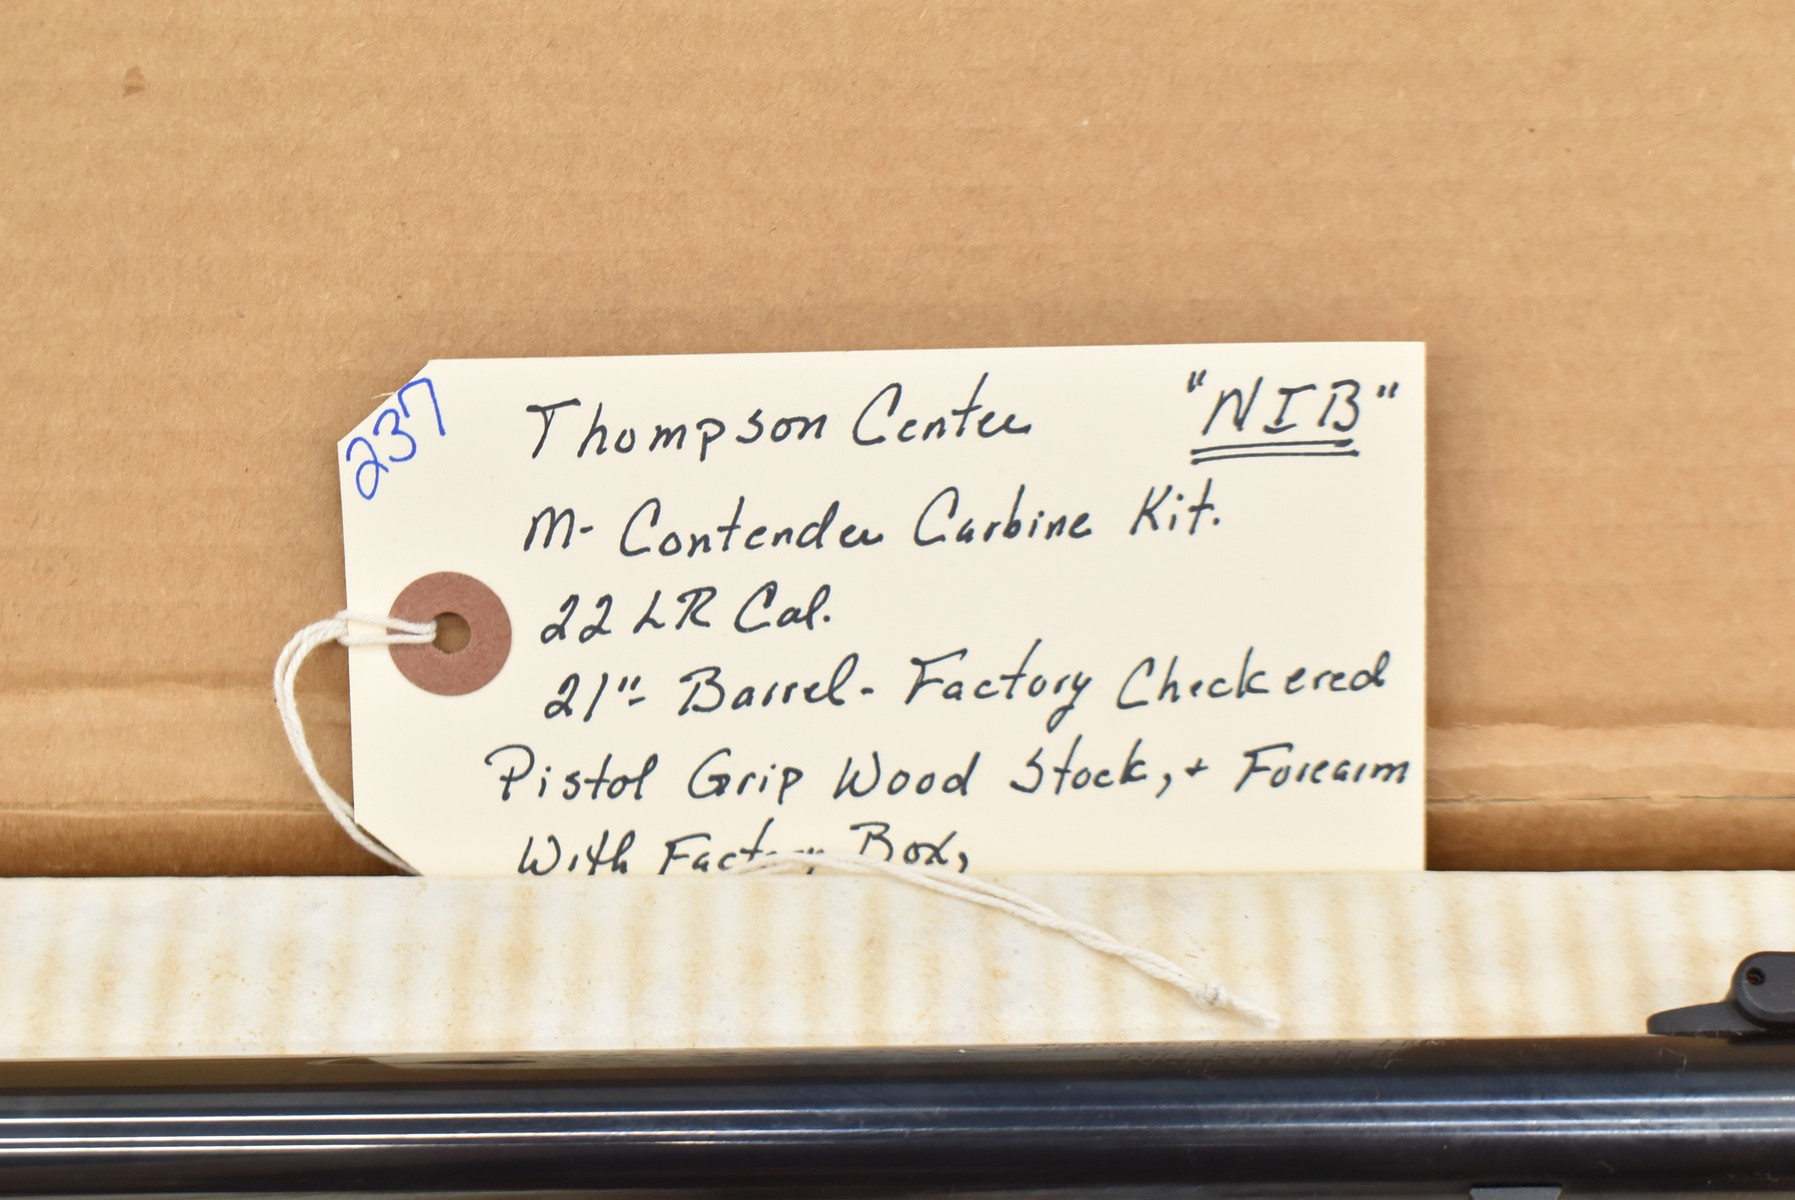 237
Thompson Center "NIB"
M- Contender Carbine Kit.
22 LR Cal.
21"- Barrel- Factory Checkered
Pistol Grip Wood Stock, + Forearm
With Factory Box,